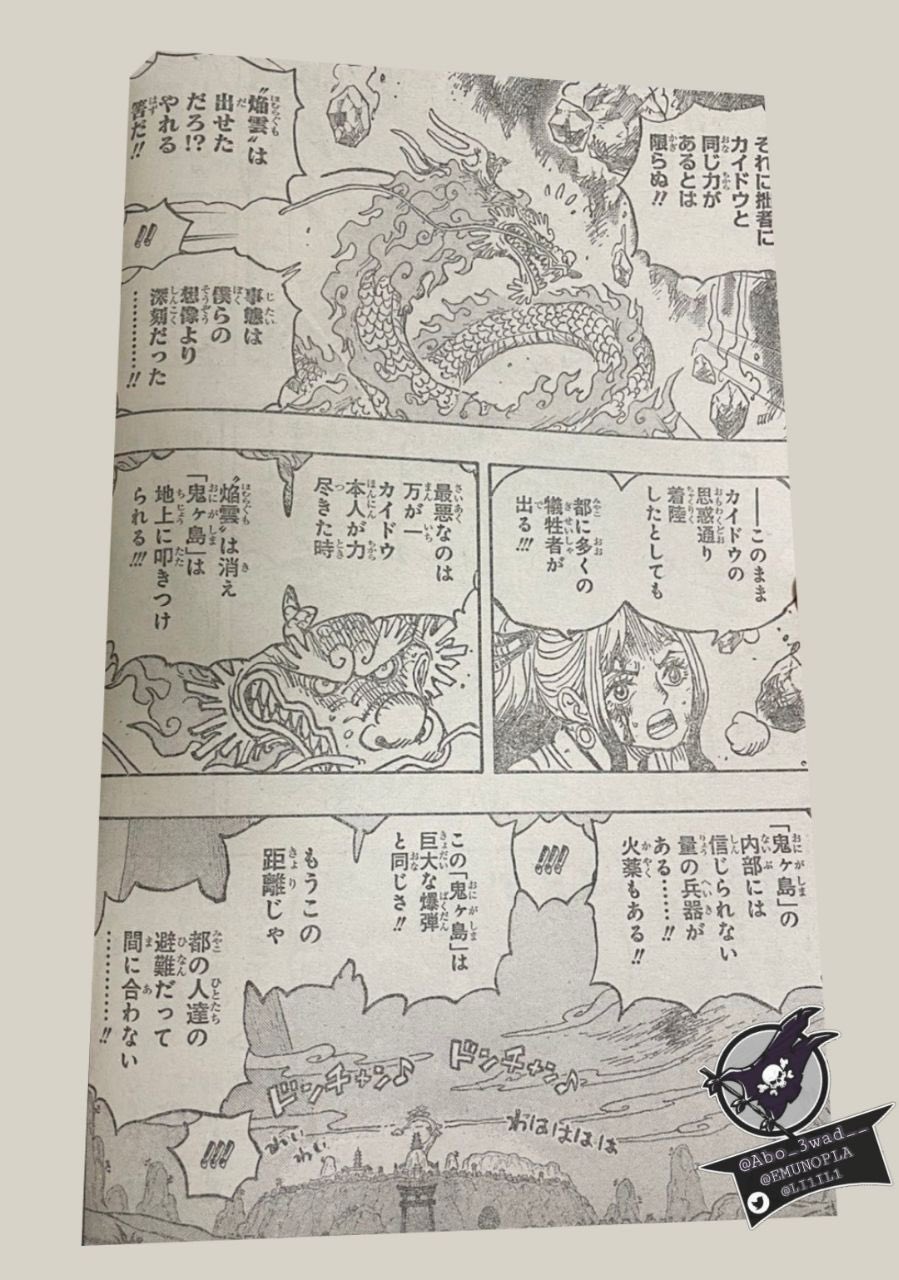 それに拙者に
カイドウと
同じ力が
あるとは
限らぬ!!
“焔雲”は
出せた
だろ!?
やれる
筈だ!!
!!
事態は
僕らの
想像より
深刻だった
…………!!
──このまま
カイドウの
思惑通り
着陸
したとしても
都に多くの
犠牲者が
出る!!!
最悪なのは
万が一
カイドウ
本人が力
尽きた時
“焔雲”は消え
「鬼ヶ島」は
地上に叩きつけ
られる!!!
「鬼ヶ島」の
内部には
信じられない
量の兵器が
ある……!!
火薬もある!!
!!!
この「鬼ヶ島」は
巨大な爆弾
と同じさ!!
もうこの
距離じゃ
都の人達の
避難だって
間に合わない
…………!!
ドンチャン♪
ドンチャン♪
わははははは
わいわい
!!!
@Abo_3wad__
@EMUNOPLA
@LI1IL1